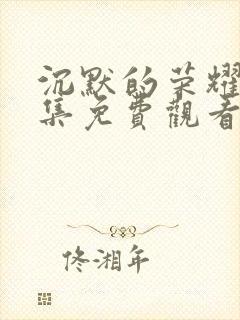 沉默的荣耀
集免費觀看
佟湘年